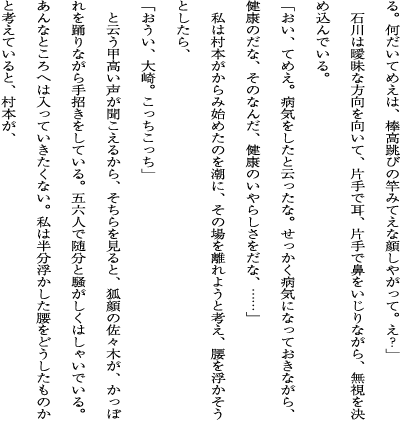 る。何だいてめえは、棒高跳びの竿みてえな顔しやがって。え？」
　石川は曖昧な方向を向いて、片手で耳、片手で鼻をいじりながら、無視を決
め込んでいる。
「おい、てめえ。病気をしたと云ったな。せっかく病気になっておきながら、
健康のだな、そのなんだ、健康のいやらしさをだな、……」
　私は村本がからみ始めたのを潮に、その場を離れようと考え、腰を浮かそう
としたら、
「おうい、大崎。こっちこっち」
　と云う甲高い声が聞こえるから、そちらを見ると、狐顔の佐々木が、かっぽ
れを踊りながら手招きをしている。五六人で随分と騒がしくはしゃいでいる。
あんなところへは入っていきたくない。私は半分浮かした腰をどうしたものか
と考えていると、村本が、